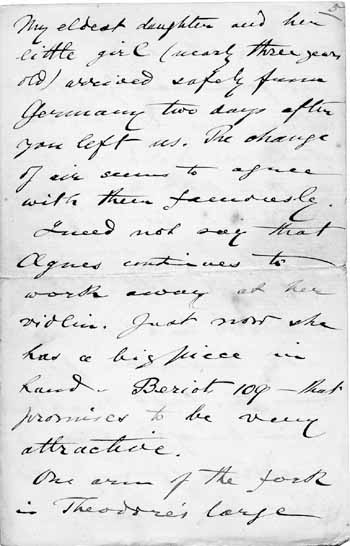 5
My eldest daughter and her
little girl (nearly three years
old) arrived safely from
Germany two days after
you left us. The change
of air seems to agree
with them famously.
I need not say that
Agnes continues to
work away at her
violin. Just now she
has a big piece in
hand - Beriot 109 - that
promises to be very
attractive.
One arm of the fork
in Theodore's large